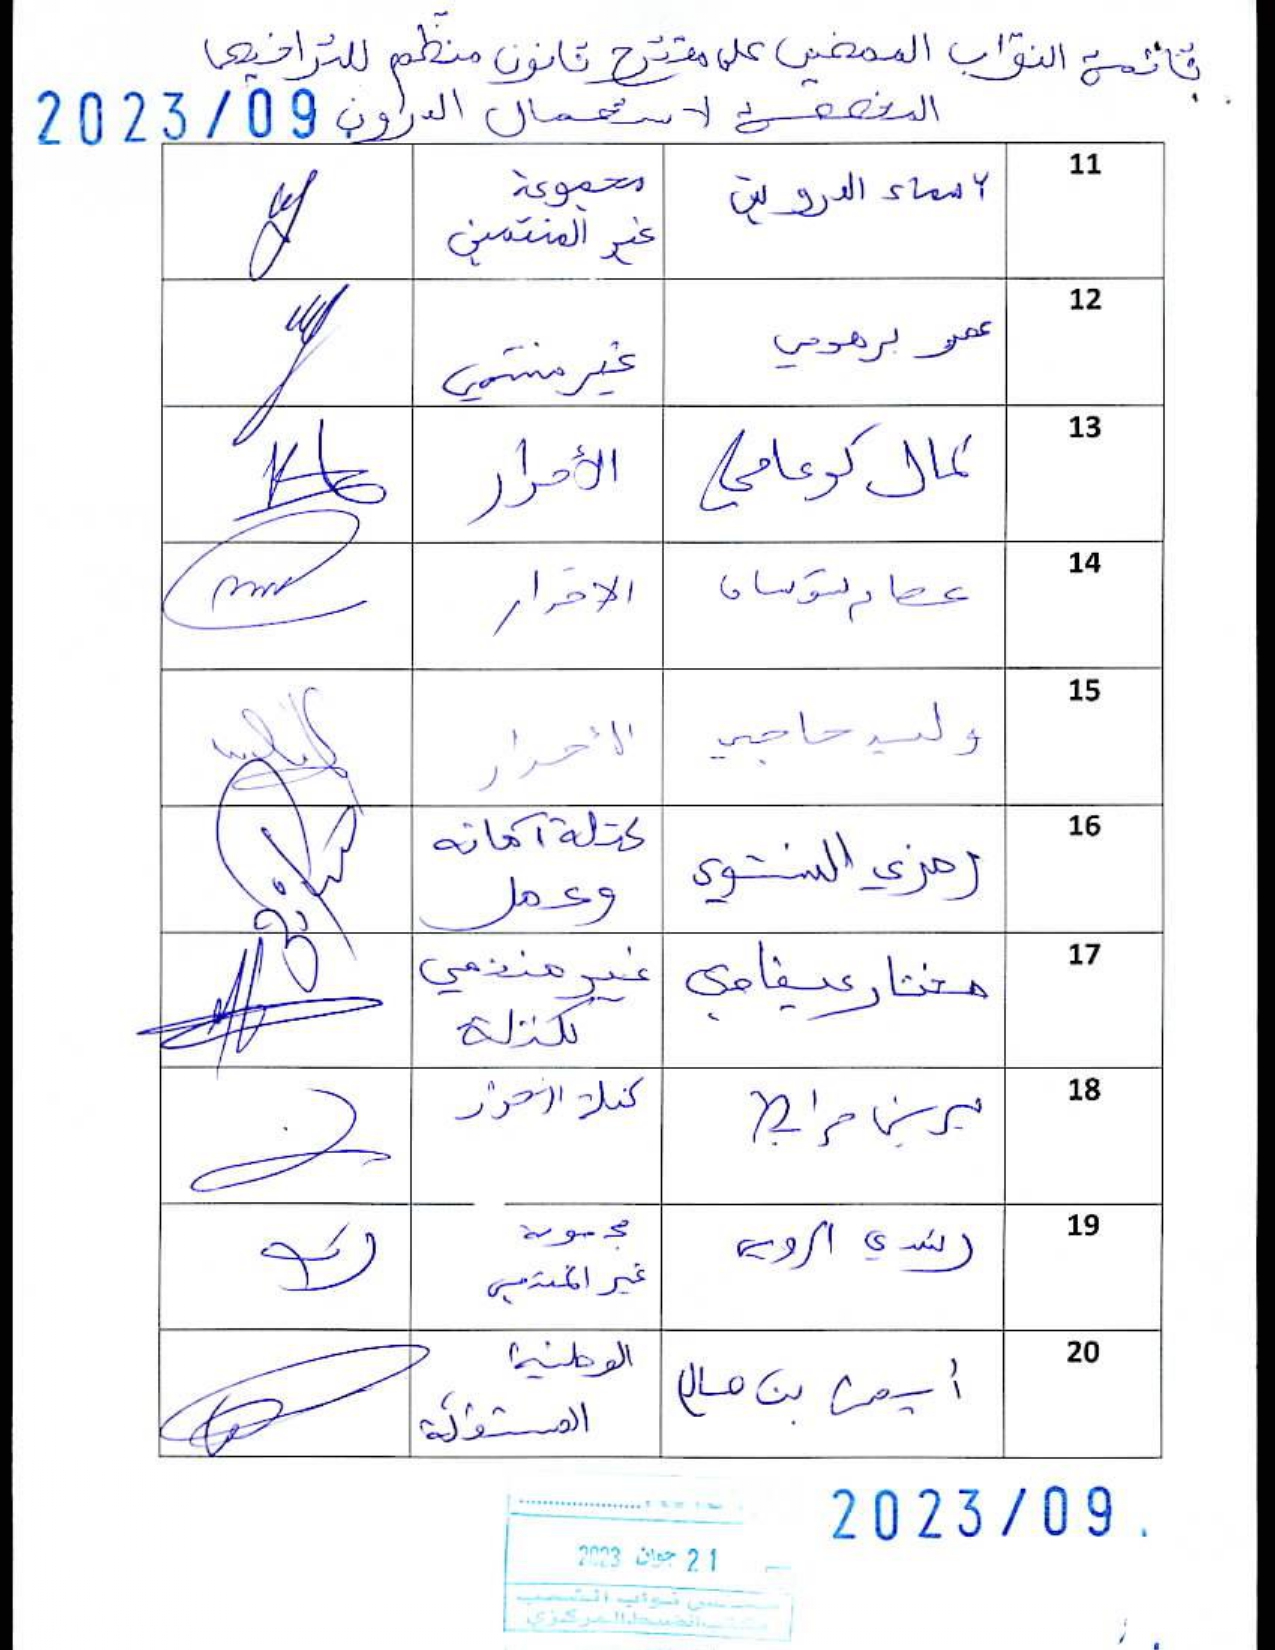 قائمة النوّاب الممضين على مقترح قانون منظّم للتراخيص
لاستعمال الدرون 2023/09
11
أسماء الدرويش
مجموعة
غير المنتمين
12
عمر برهومي
غير منتمي
13
كمال كرعاني
الأحرار
14
عصام شوشان
الاحرار
15
وليد حاجي
الأحرار
16
رمزي الشتوي
كتلة أمانة
وعمل
17
مختار عيفاوي
غير منتمي
لكتلة
18
سيرين مرابط
كتلة الأحرار
19
رشدي الرويسي
مجموعة
غير المنتمين
20
أيمن بن صالح
الوطنية
المستقلة
2023/09
21 جوان 2023
مجلس نواب الشعب
مكتب الضبط المركزي